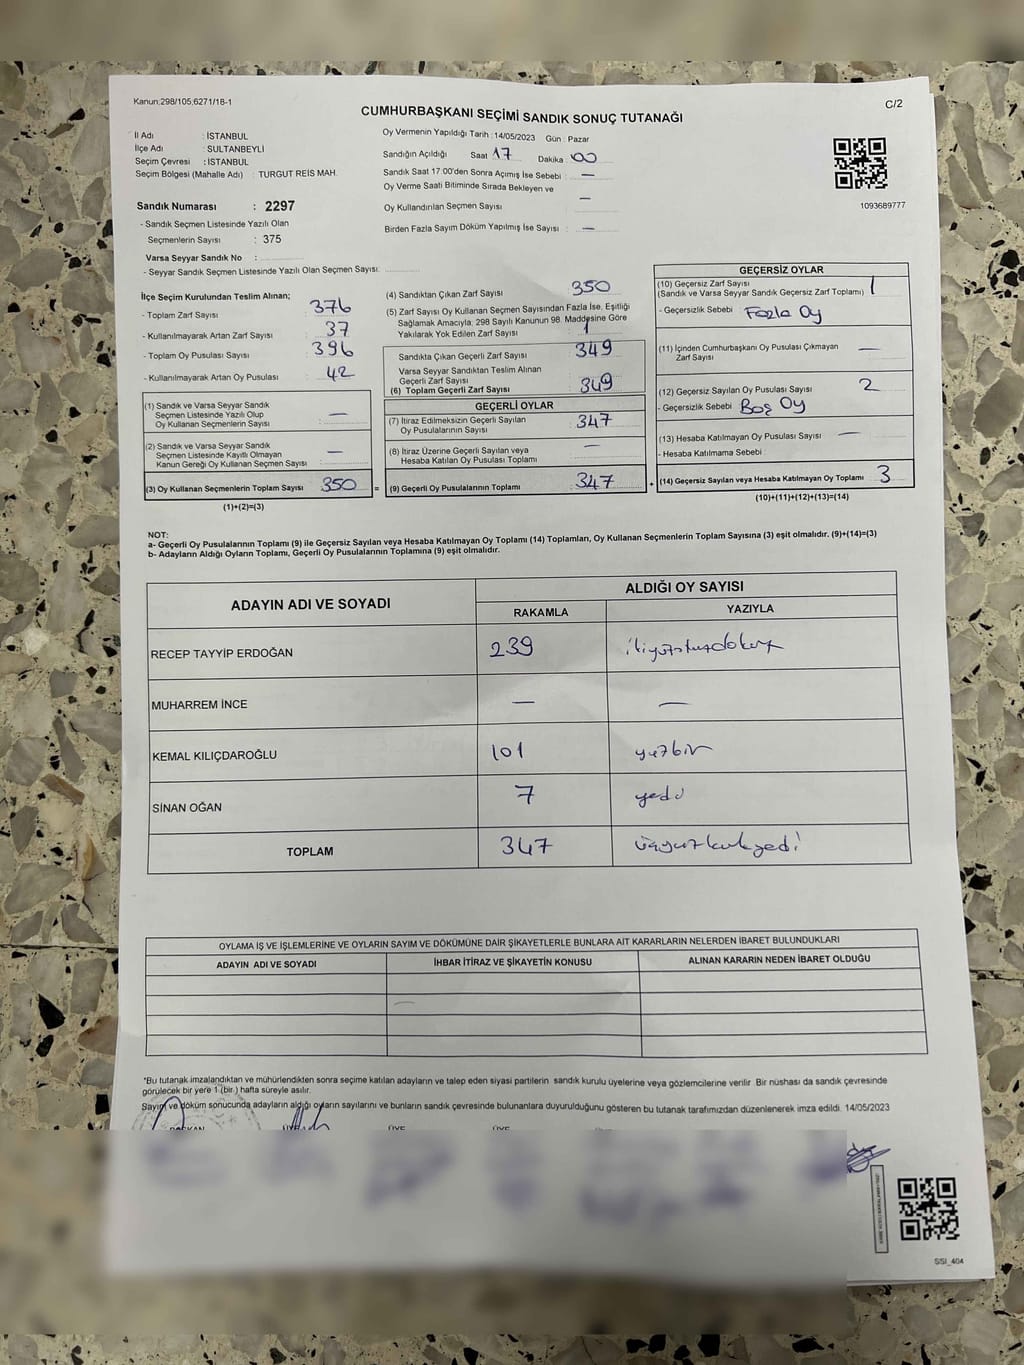 Kanun:298/105;6271/18-1
C/2
CUMHURBAŞKANI SEÇİMİ SANDIK SONUÇ TUTANAĞI
İl Adı : İSTANBUL
İlçe Adı : SULTANBEYLİ
Seçim Çevresi : İSTANBUL
Seçim Bölgesi (Mahalle Adı) : TURGUT REİS MAH.
Oy Vermenin Yapıldığı Tarih : 14/05/2023 Gün : Pazar
Sandığın Açıldığı Saat 17 Dakika 00
Sandık Saat 17:00'den Sonra Açımış İse Sebebi : —
Oy Verme Saati Bitiminde Sırada Bekleyen ve
Oy Kullandırılan Seçmen Sayısı —
Birden Fazla Sayım Döküm Yapılmış İse Sayısı : —
1093689777
Sandık Numarası : 2297
- Sandık Seçmen Listesinde Yazılı Olan
Seçmenlerin Sayısı : 375
Varsa Seyyar Sandık No :
- Seyyar Sandık Seçmen Listesinde Yazılı Olan Seçmen Sayısı:
İlçe Seçim Kurulundan Teslim Alınan;
- Toplam Zarf Sayısı : 376
- Kullanılmayarak Artan Zarf Sayısı : 37
- Toplam Oy Pusulası Sayısı : 396
- Kullanılmayarak Artan Oy Pusulası : 42
(1) Sandık ve Varsa Seyyar Sandık
Seçmen Listesinde Yazılı Olup
Oy Kullanan Seçmenlerin Sayısı : —
(2) Sandık ve Varsa Seyyar Sandık
Seçmen Listesinde Kayıtlı Olmayan
Kanun Gereği Oy Kullanan Seçmen Sayısı : —
(3) Oy Kullanan Seçmenlerin Toplam Sayısı : 350 =
(1)+(2)=(3)
(4) Sandıktan Çıkan Zarf Sayısı : 350
(5) Zarf Sayısı Oy Kullanan Seçmen Sayısından Fazla İse, Eşitliği
Sağlamak Amacıyla; 298 Sayılı Kanunun 98. Maddesine Göre
Yakılarak Yok Edilen Zarf Sayısı : 1
Sandıkta Çıkan Geçerli Zarf Sayısı : 349
Varsa Seyyar Sandıktan Teslim Alınan
Geçerli Zarf Sayısı
(6) Toplam Geçerli Zarf Sayısı : 349
GEÇERLİ OYLAR
(7) İtiraz Edilmeksizin Geçerli Sayılan
Oy Pusulalarının Sayısı : 347
(8) İtiraz Üzerine Geçerli Sayılan veya
Hesaba Katılan Oy Pusulası Toplamı : —
(9) Geçerli Oy Pusulalarının Toplamı : 347 +
GEÇERSİZ OYLAR
(10) Geçersiz Zarf Sayısı
(Sandık ve Varsa Seyyar Sandık Geçersiz Zarf Toplamı) 1
- Geçersizlik Sebebi : Fazla Oy
(11) İçinden Cumhurbaşkanı Oy Pusulası Çıkmayan
Zarf Sayısı : —
(12) Geçersiz Sayılan Oy Pusulası Sayısı : 2
- Geçersizlik Sebebi : Boş Oy
(13) Hesaba Katılmayan Oy Pusulası Sayısı : —
- Hesaba Katılmama Sebebi :
(14) Geçersiz Sayılan veya Hesaba Katılmayan Oy Toplamı : 3
(10)+(11)+(12)+(13)=(14)
NOT:
a- Geçerli Oy Pusulalarının Toplamı (9) ile Geçersiz Sayılan veya Hesaba Katılmayan Oy Toplamı (14) Toplamları, Oy Kullanan Seçmenlerin Toplam Sayısına (3) eşit olmalıdır. (9)+(14)=(3)
b- Adayların Aldığı Oyların Toplamı, Geçerli Oy Pusulalarının Toplamına (9) eşit olmalıdır.
ADAYIN ADI VE SOYADI
ALDIĞI OY SAYISI
RAKAMLA YAZIYLA
RECEP TAYYİP ERDOĞAN 239 ikiyüzotuzdokuz
MUHARREM İNCE — —
KEMAL KILIÇDAROĞLU 101 yüzbir
SİNAN OĞAN 7 yedi
TOPLAM 347 üçyüzkırkyedi
OYLAMA İŞ VE İŞLEMLERİNE VE OYLARIN SAYIM VE DÖKÜMÜNE DAİR ŞİKAYETLERLE BUNLARA AİT KARARLARIN NELERDEN İBARET BULUNDUKLARI
ADAYIN ADI VE SOYADI İHBAR İTİRAZ VE ŞİKAYETİN KONUSU ALINAN KARARIN NEDEN İBARET OLDUĞU
—
*Bu tutanak imzalandıktan ve mühürlendikten sonra seçime katılan adayların ve talep eden siyasi partilerin sandık kurulu üyelerine veya gözlemcilerine verilir. Bir nüshası da sandık çevresinde
görülecek bir yere 1 (bir) hafta süreyle asılır.
Sayım ve döküm sonucunda adayların aldığı oyların sayılarını ve bunların sandık çevresinde bulunanlara duyurulduğunu gösteren bu tutanak tarafımızdan düzenlenerek imza edildi. 14/05/2023
BAŞKAN ÜYE ÜYE ÜYE
SSI_404